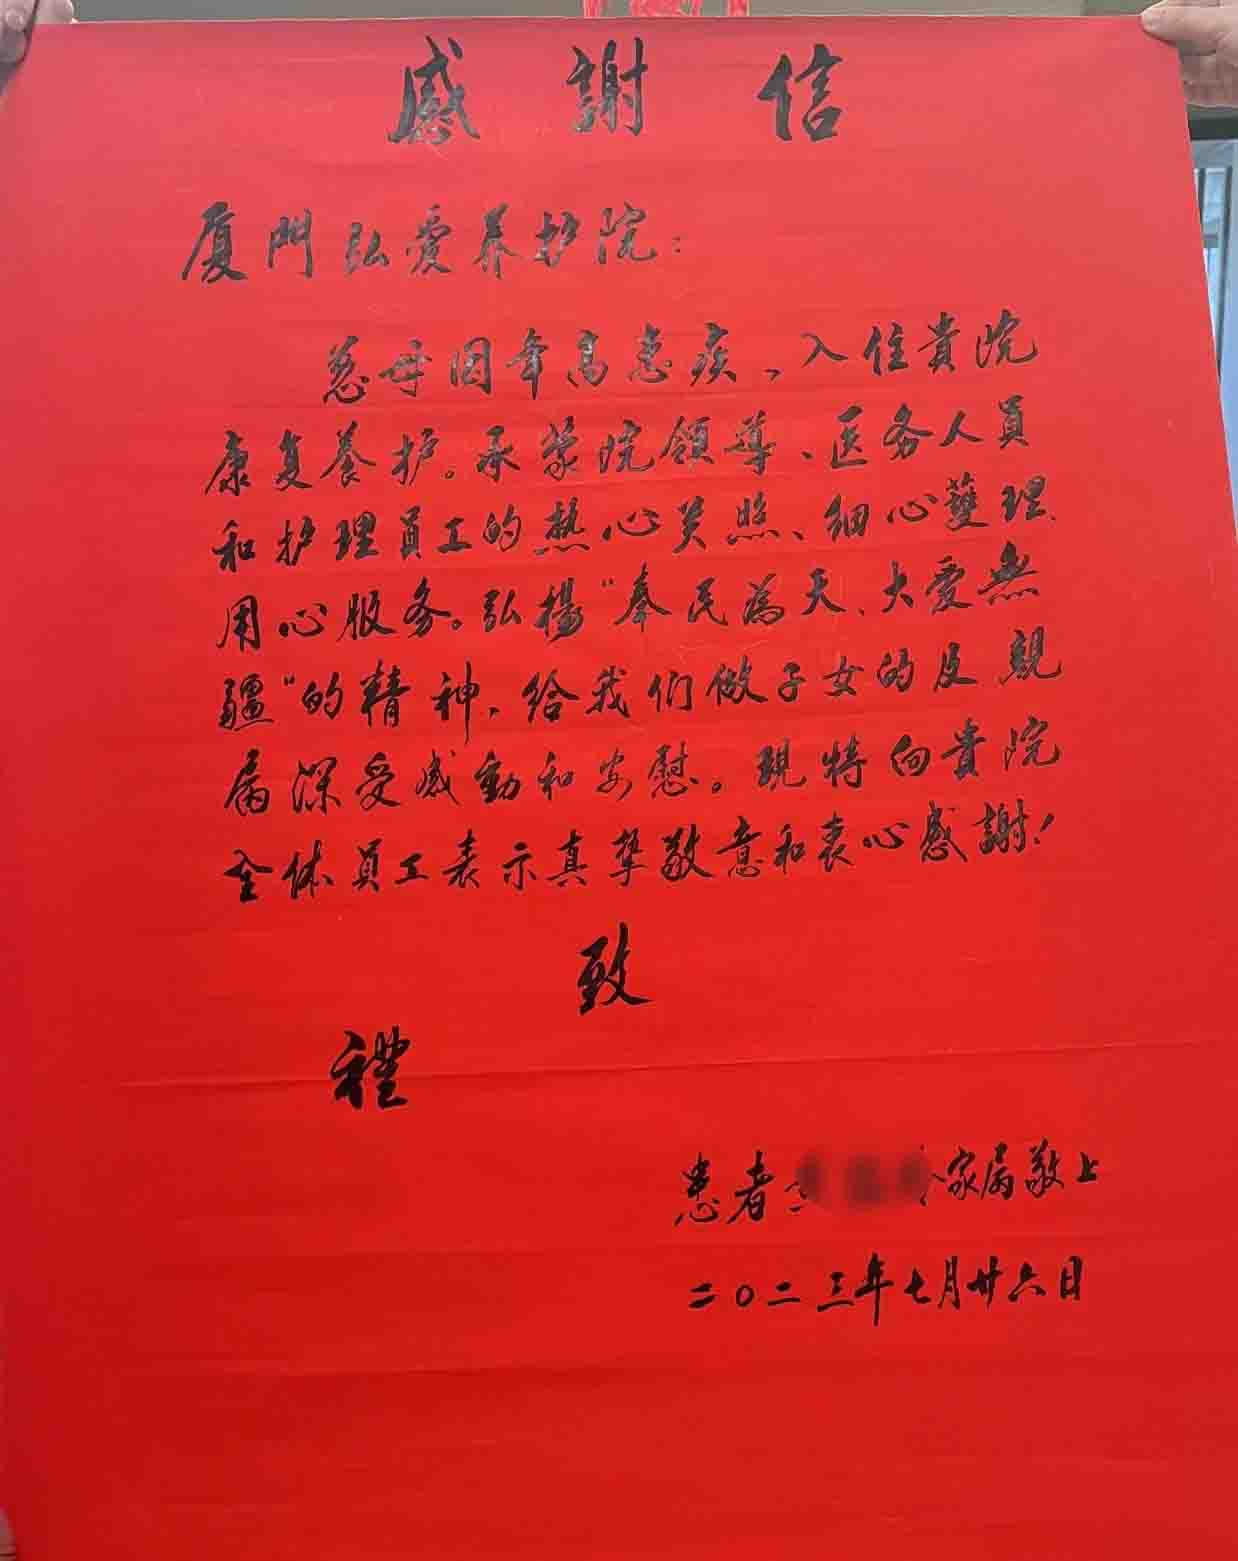 感謝信
厦門弘愛养护院：
慈母因年高患疾，入住貴院
康复養护。承蒙院領導、医务人員
和护理員工的热心关照、细心護理、
用心服务。弘揚“奉民為天、大爱無
疆”的精神，给我们做子女的及親
属深受感動和安慰。現特向貴院
全体員工表示真挚敬意和衷心感謝！
致
禮
患者 家属敬上
二〇二三年七月廿六日